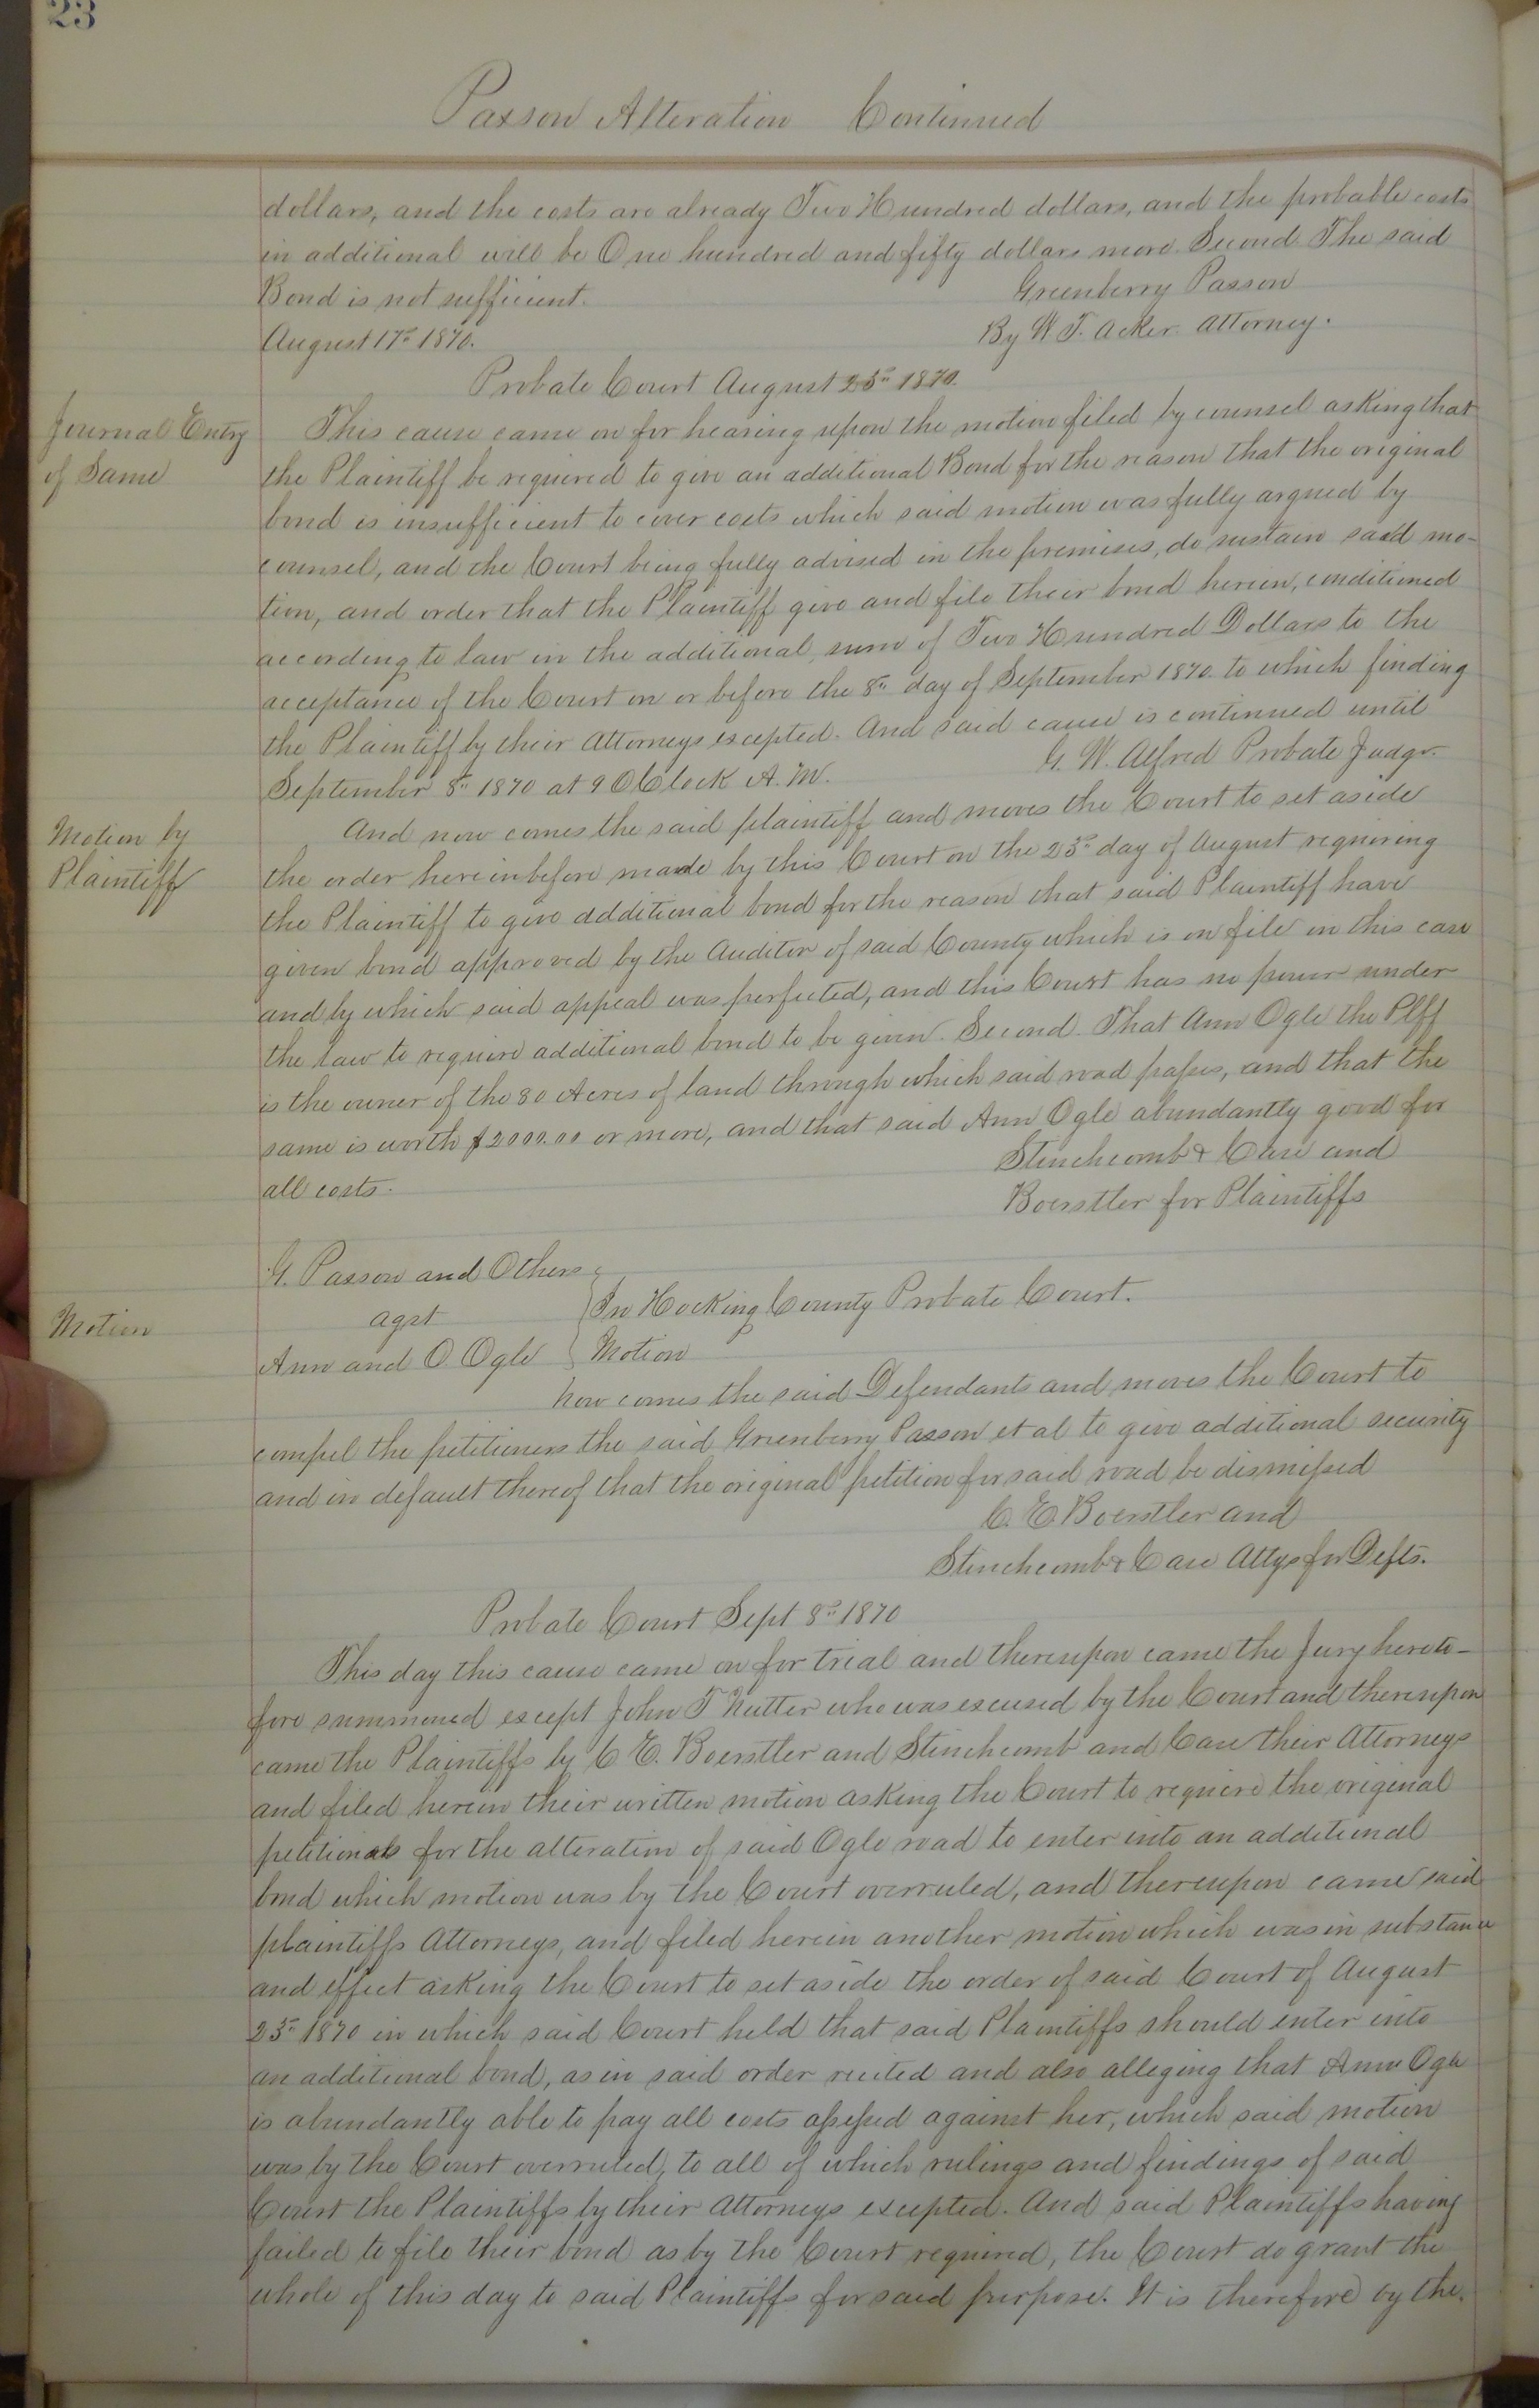 23
Paxson Alteration Continued
dollars, and the costs are already Two Hundred dollars, and the probable costs
in additional will be One hundred and fifty dollars more. Second The said
Bond is not sufficient. Greenberry Paxson
August 17th 1870. By W. T. Acker Attorney.
Probate Court August 23rd 1870.
Journal Entry
of Same
This cause came on for hearing upon the motion filed by counsel asking that
the Plaintiff be required to give an additional Bond for the reason that the original
bond is insufficient to cover costs which said motion was fully argued by
counsel, and the Court being fully advised in the premises, do sustain said mo-
tion, and order that the Plaintiff give and file their bond herein, conditioned
according to law in the additional sum of Two Hundred Dollars to the
acceptance of the Court on or before the 8th day of September 1870. to which finding
the Plaintiff by their Attorneys excepted. And said cause is continued until
September 8th 1870 at 9 O Clock A. M. G. W. Alfred Probate Judge.
Motion by
Plaintiff
And now comes the said plaintiff and moves the Court to set aside
the order hereinbefore made by this Court on the 23rd day of August requiring
the Plaintiff to give additional bond for the reason that said Plaintiff have
given bond approved by the Auditor of said County which is on file in this case
and by which said appeal was perfected, and this Court has no power under
the law to require additional bond to be given. Second. That Ann Ogle the Plff
is the owner of the 80 Acres of land through which said road passes, and that the
same is worth $2000.00 or more, and that said Ann Ogle abundantly good for
all costs. Stinchcomb & Case and
Boerstler for Plaintiffs
Motion
G. Paxson and Others
agst In Hocking County Probate Court.
Ann and O. Ogle Motion
Now comes the said Defendants and moves the Court to
compel the petitioners the said Greenberry Paxson et al to give additional security
and in default thereof that the original petition for said road be dismissed
C. E. Boerstler and
Stinchcomb & Case Attys for Defts.
Probate Court Sept 8th 1870
This day this cause came on for trial and thereupon came the Jury hereto-
fore summoned except John T Nutter who was excused by the Court and thereupon
came the Plaintiffs by C E. Boerstler and Stinchcomb and Case their Attorneys
and filed herein their written motion asking the Court to require the original
petitioners for the alteration of said Ogle road to enter into an additional
bond which motion was by the Court overruled, and thereupon came said
plaintiffs Attorneys, and filed herein another motion which was in substance
and effect asking the Court to set aside the order of said Court of August
23rd 1870 in which said Court held that said Plaintiffs should enter into
an additional bond, as in said order recited and also alleging that Ann Ogle
is abundantly able to pay all costs assessed against her, which said motion
was by the Court overruled, to all of which rulings and findings of said
Court the Plaintiffs by their Attorneys excepted. And said Plaintiffs having
failed to file their bond as by the Court required, the Court do grant the
whole of this day to said Plaintiffs for said purpose. It is therefore by the